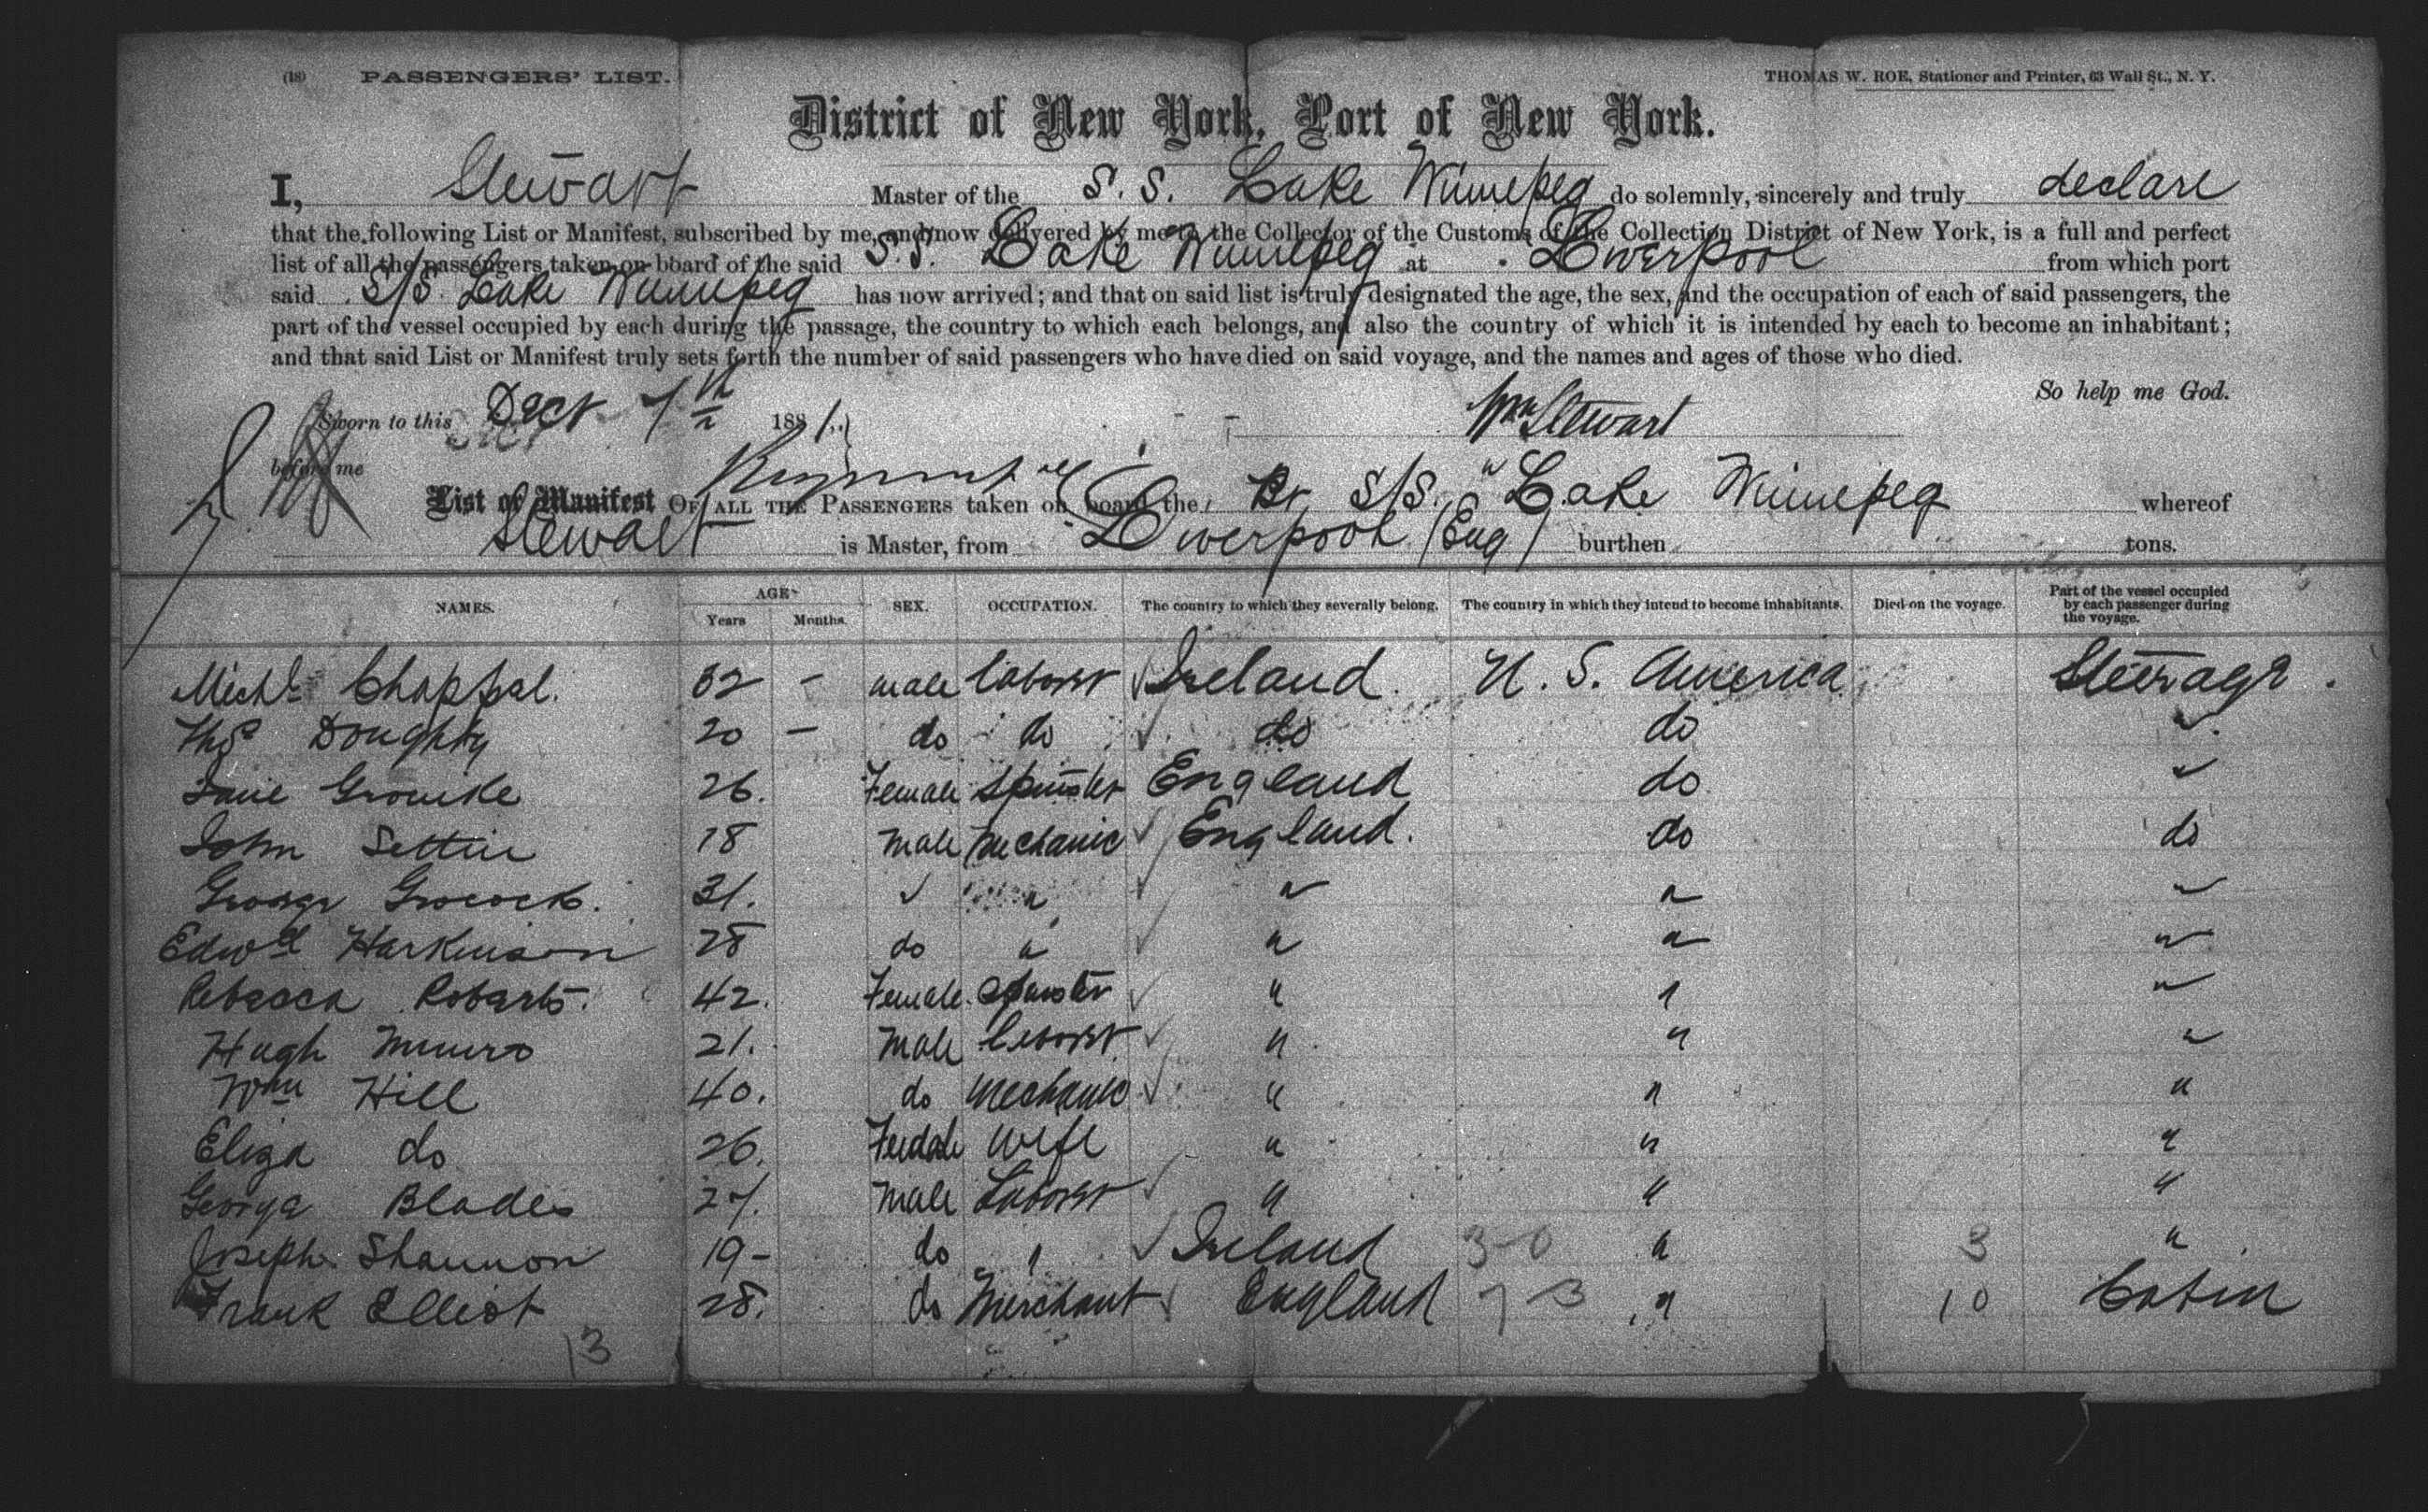 (18) PASSENGERS' LIST. THOMAS W. ROE, Stationer and Printer, 63 Wall St., N. Y.
District of New York, Port of New York.
I, Stewart Master of the S. S. Lake Winnepeg do solemnly, sincerely and truly declare
that the following List or Manifest, subscribed by me, and now delivered by me to the Collector of the Customs of the Collection District of New York, is a full and perfect
list of all the passengers taken on board of the said S.S. Lake Winnepeg at Liverpool from which port
said S/S. Lake Winnepeg has now arrived; and that on said list is truly designated the age, the sex, and the occupation of each of said passengers, the
part of the vessel occupied by each during the passage, the country to which each belongs, and also the country of which it is intended by each to become an inhabitant;
and that said List or Manifest truly sets forth the number of said passengers who have died on said voyage, and the names and ages of those who died.
So help me God.
Sworn to this Decr 7th 1881. Wm Stewart
before me
List or Manifest OF ALL THE PASSENGERS taken on board the Br S/S. "Lake Winnepeg whereof
Stewart is Master, from Liverpool (Eng) burthen tons.
NAMES. AGE Years Months. SEX. OCCUPATION. The country to which they severally belong. The country in which they intend to become inhabitants. Died on the voyage. Part of the vessel occupied by each passenger during the voyage.
Michl Chappel. 32 - male laborer Ireland. U. S. America Steerage.
Thos Doughty 20 - do do do do "
Jane 26. Female Spinster England do "
John Settin 18 male Mechanic England. do do
George Grocock. 31. " " " " "
Edwd Harkinson 28 do " " " "
Rebecca Roberts. 42. Female Spinster " " "
Hugh Munro 21. male laborer " " "
Wm Hill 40. do mechanic " " "
Eliza do 26. Female wife " " "
George Blades 27. male Laborer " " "
Joseph Shannon 19- do " Ireland 3-0 " 3 "
Frank Elliot 28. do Merchant England 7 3 " 10 Cabin
13